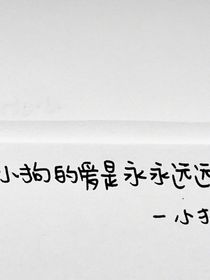 小狗的爱是永永远远
一小